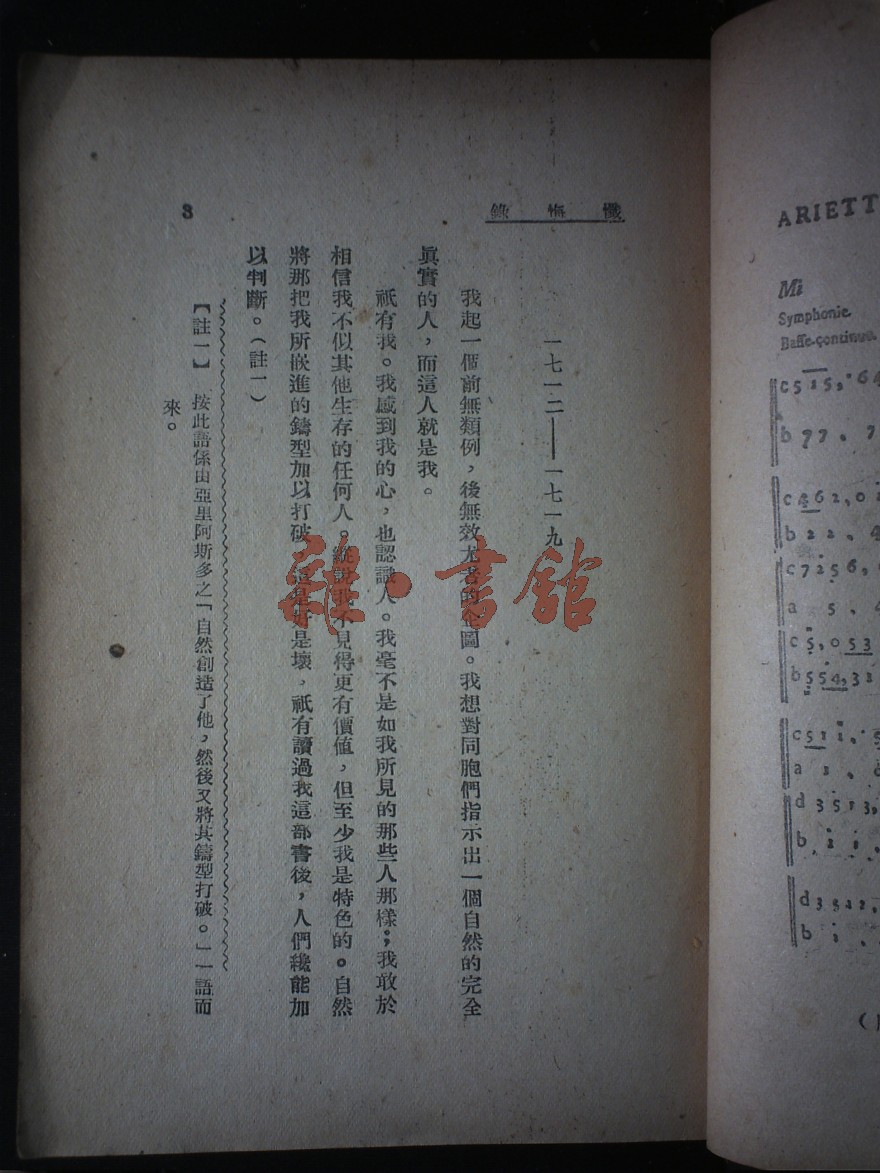 懺悔錄
3
一七一二——一七一九
我起一個前無類例，後無效尤者的企圖。我想對同胞們指示出一個自然的完全
眞實的人，而這人就是我。
祇有我。我感到我的心，也認識人。我毫不是如我所見的那些人那樣；我敢於
相信我不似其他生存的任何人。縱說我不見得更有價值，但至少我是特色的。自然
將那把我所嵌進的鑄型加以打破，這是好是壞，祇有讀過我這部書後，人們纔能加
以判斷。（註一）
【註一】 按此語係由亞里阿斯多之「自然創造了他，然後又將其鑄型打破。」一語而
來。
雜·書館
ARIETT
Mi
Symphonie.
Baffe-continue.